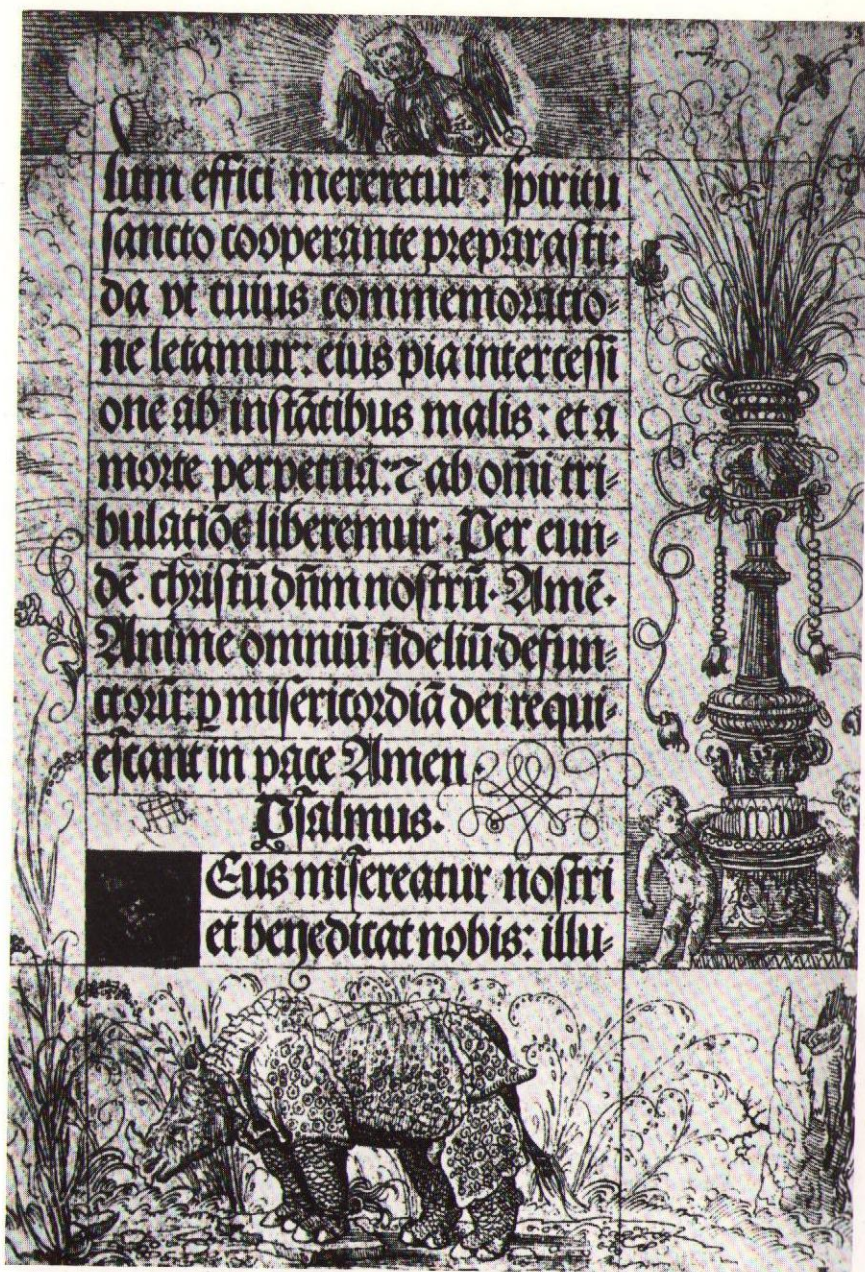 lum effici mereretur: spiritu
sancto cooperante preparasti:
da vt cuius commemoratio⸗
ne letamur: eius pia intercessi
one ab instātibus malis: et a
morte perpetua: ⁊ ab om̄i tri⸗
bulatiōe liberemur. Per eun⸗
dē. christū dn̄m nostrū. Amē.
Anime omniū fideliū defun⸗
ctorū: ꝑ misericordiā dei requi⸗
escant in pace Amen.
Psalmus.
Eus misereatur nostri
et benedicat nobis: illu⸗